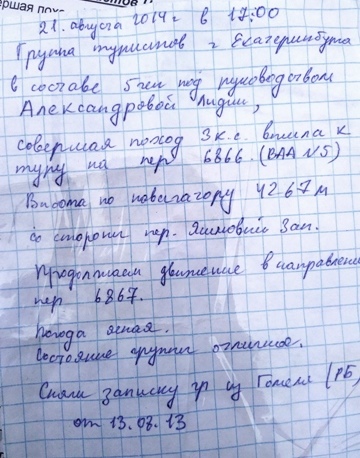 21. августа 2014 г в 17:00
Группа туристов г Екатеринбурга
в составе 5 чел под руководством
Александровой Лидии,
совершая поход 3 к.с. вышла к
туру на пер 6866. (ВАА N5)
Высота по навигатору 4267 м
со стороны пер. Яшмовый Зап.
Продолжаем движение в направлени
пер 6867.
Погода ясная.
Состояние группы отличное.
Сняли записку гр из Гомеля (РБ)
от 13.08.13